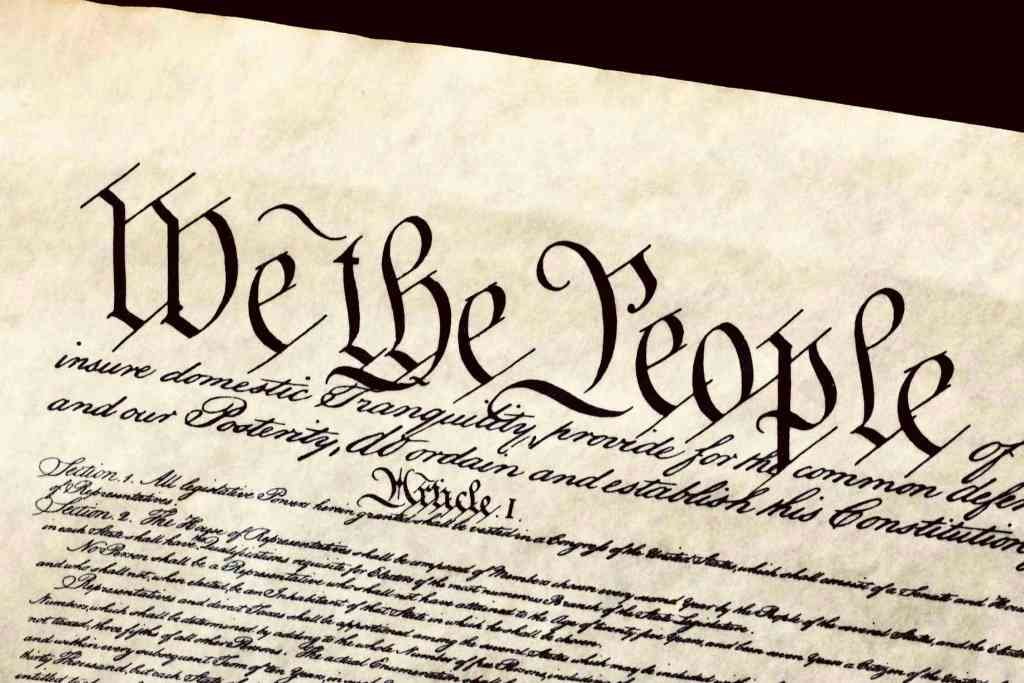 We the People of
insure domestic Tranquility, provide for the common defen
and our Posterity, do ordain and establish this Constitution
Article. I.
Section. 1. All legislative Powers herein granted shall be vested in a Congress of the United States, which shall consist of a Senate and Hou
of Representatives.
Section. 2. The House of Representatives shall be composed of Members chosen every second Year by the People of the several States, and the Elect
in each State shall have the Qualifications requisite for Electors of the most numerous Branch of the State Legislature.
No Person shall be a Representative who shall not have attained to the Age of twenty five Years, and been seven Years a Citizen of the United States,
and who shall not, when elected, be an Inhabitant of that State in which he shall be chosen.
Representatives and direct Taxes shall be apportioned among the several States which may be included
Numbers, which shall be determined by adding to the whole Number of free Persons, including
not taxed, three fifths of all other Persons. The actual Enumeration shall be made
and within every subsequent Term of ten Years, in
thirty Thousand, but each State
entitled to